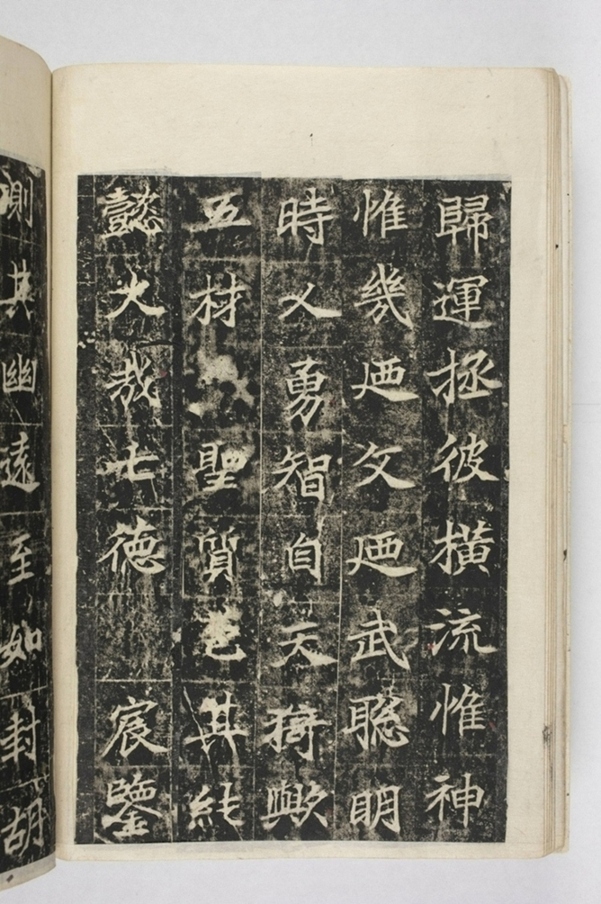 歸運拯彼橫流惟神
惟幾廼文廼武聰明
時乂勇智自天猗歟
五材聖質其純
懿大哉七德 宸鑒
測其幽遠至如封胡